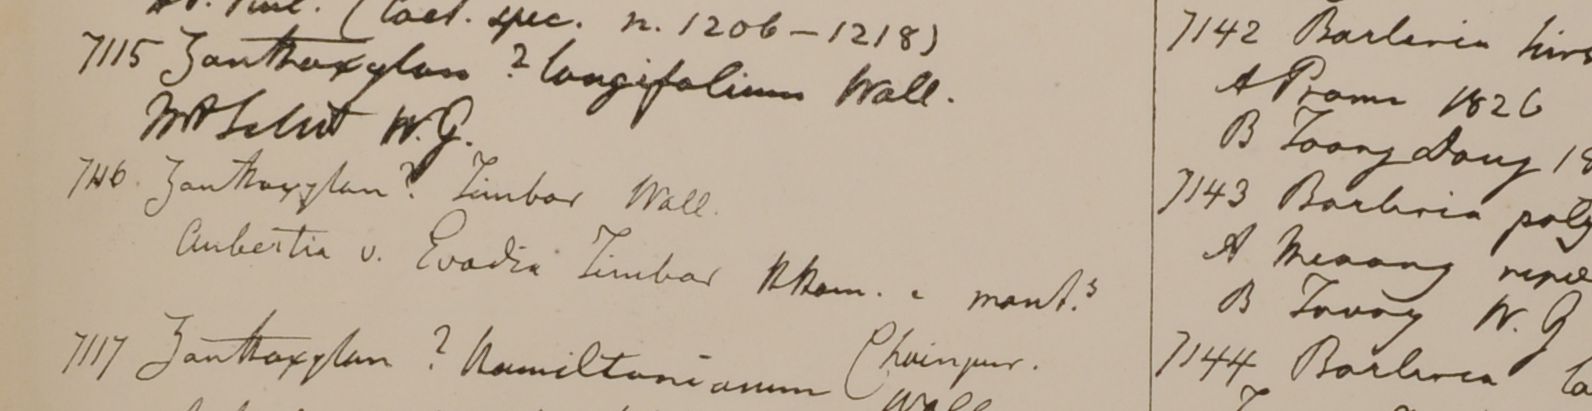 (Cat. spec. n. 1206–1218)
7115 Zanthoxylon ? longifolium Wall.
W.G.
7116 Zanthoxylon? Timbor Wall.
Aubertia v. Evodia Timbor HHam. e mont.s
Chainpur.
7117 Zanthoxylon ? Hamiltonianum
Wall
7142 Barleria hirs
A Prome 1826
B Toong Dong 18
7143 Barleria poly
A
B Tavoy W. G
7144 Barleria